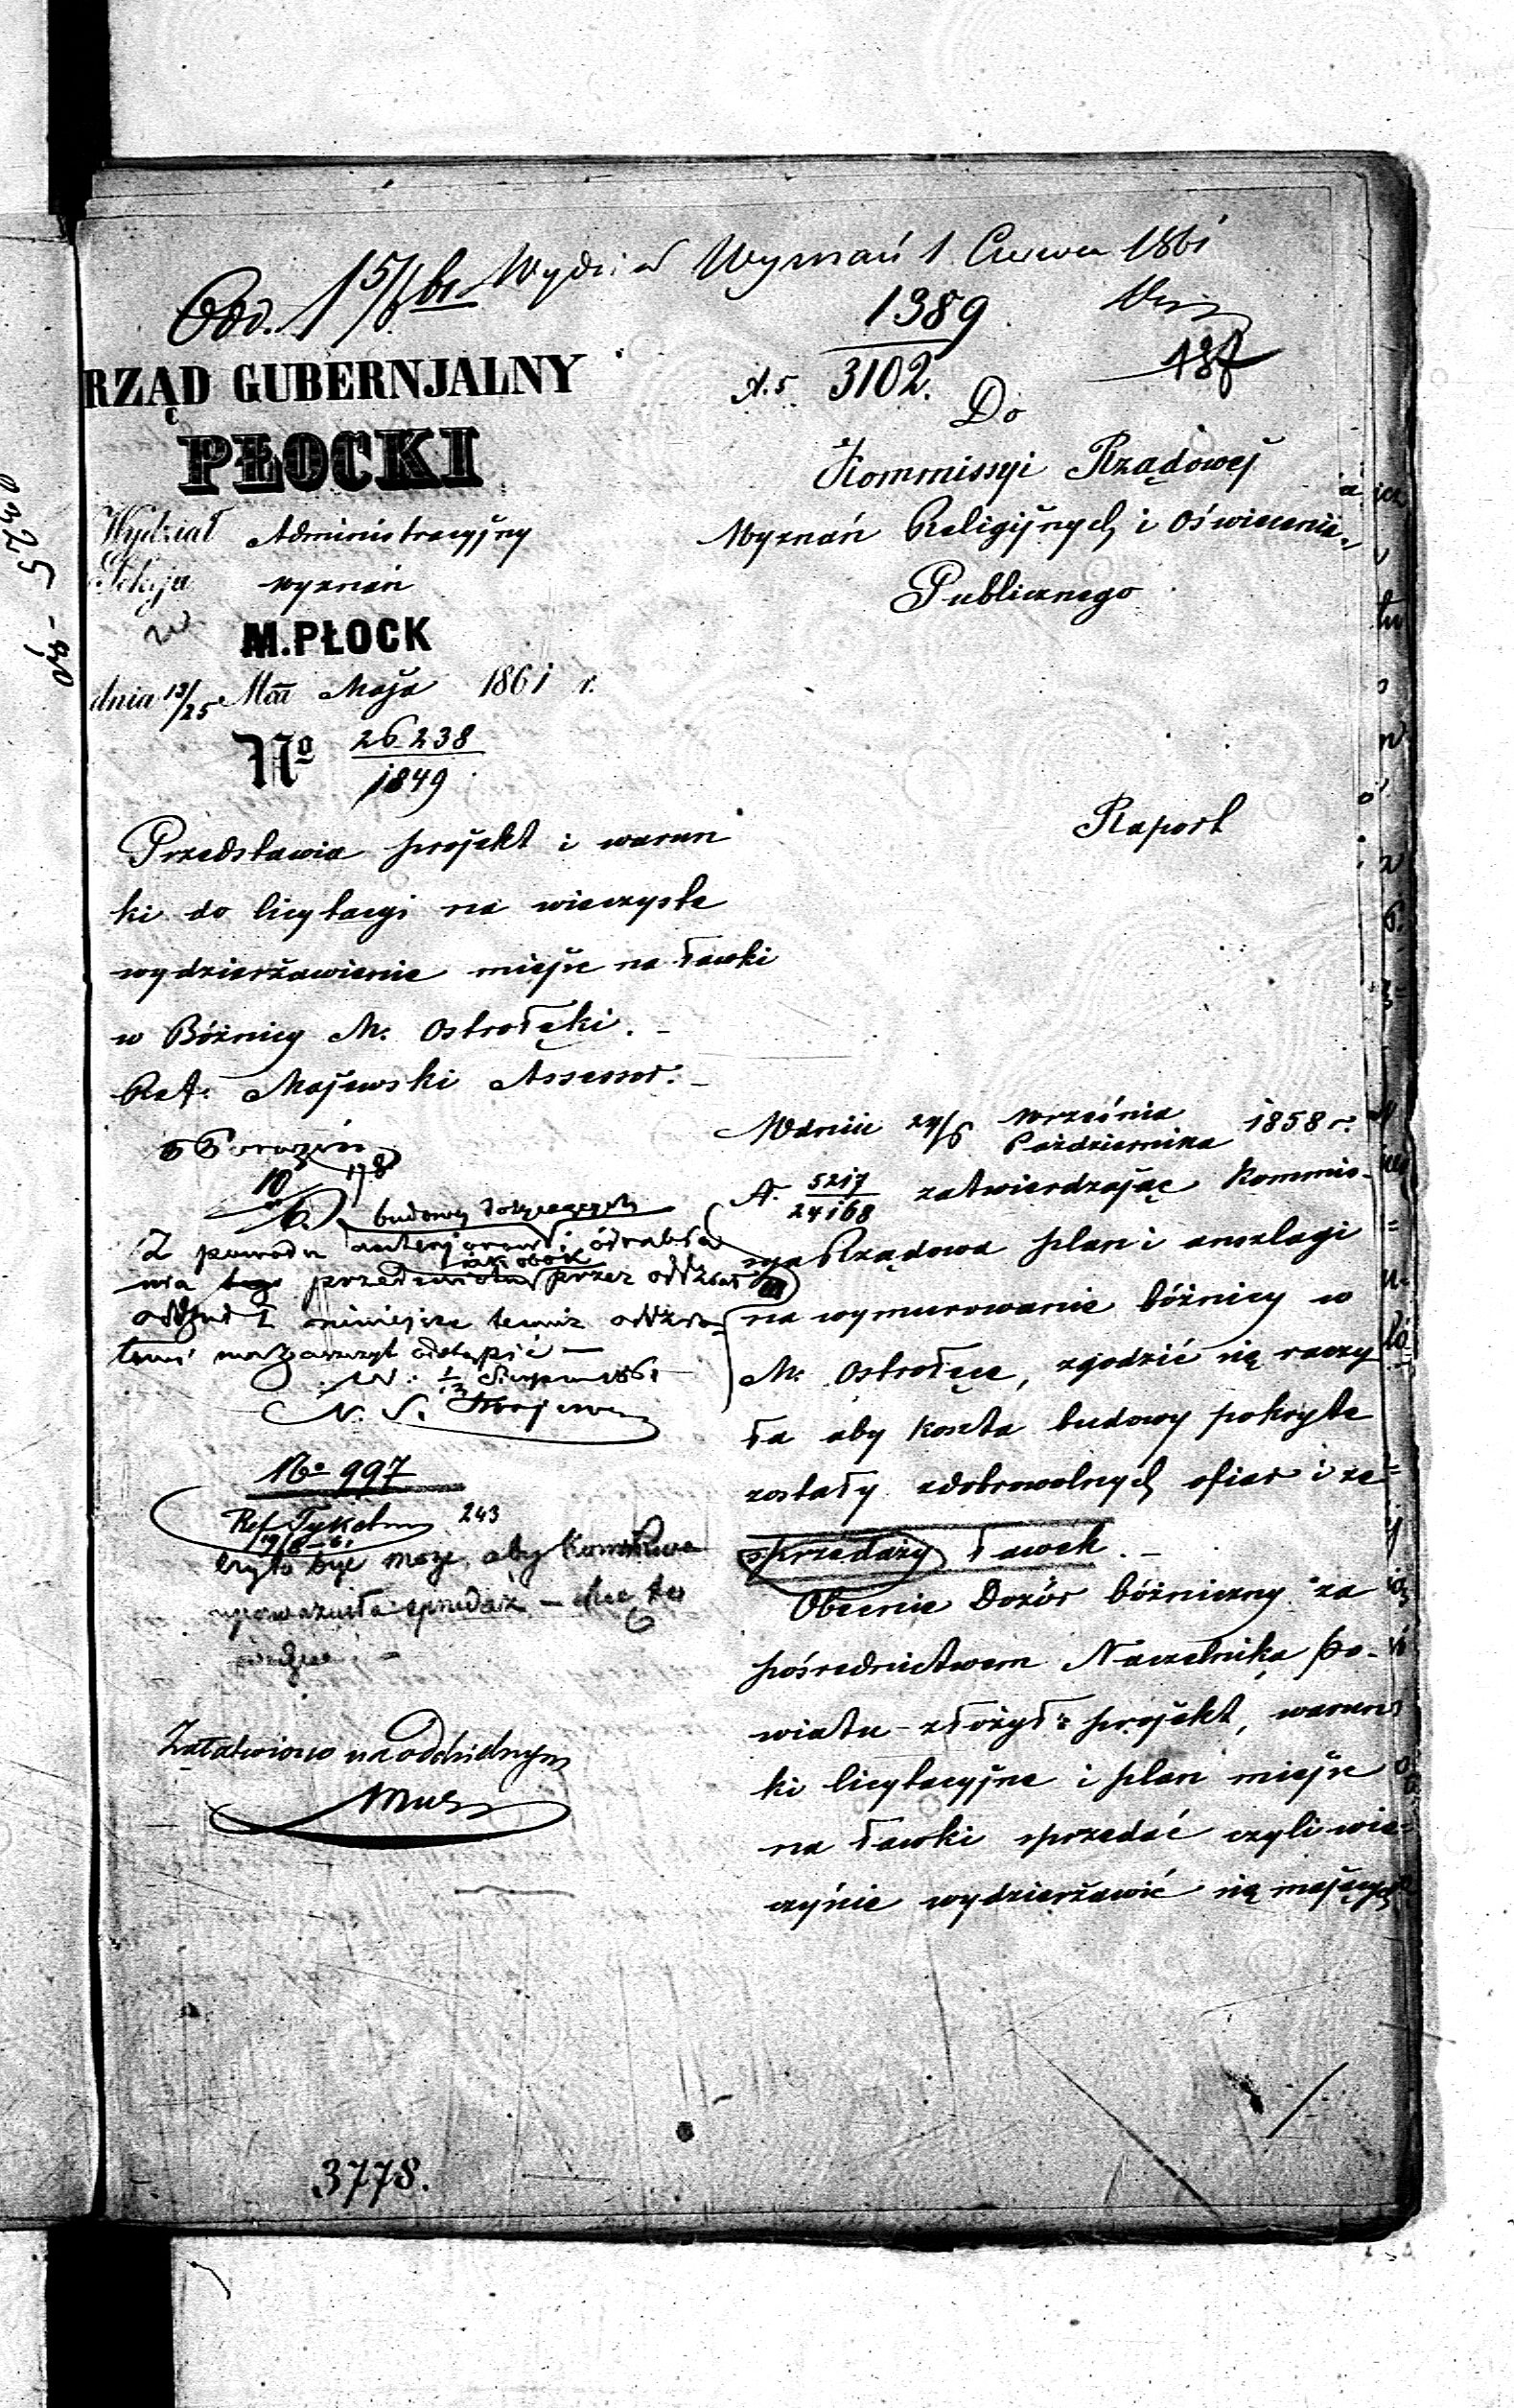 Odd. 15/6 61 Wydział Wyznań 1 Czerwca 1861
1389
3102.
187
RZĄD GUBERNJALNY
PŁOCKI
Wydział Administracyjny
Sekcja wyznań
M. PŁOCK
dnia 13/25 Maja 1861 r.
No 26238
1849
Do
Kommissyi Rządowej
Wyznań Religijnych i Oświecenia
Publicznego
Przedstawia projekt i warun
ki do licytacyi na wieczyste
wydzierżawienie miejsc na ławki
w Bóżnicy M. Ostrołęki. -
Ref. Majewski Assessor. -
Raport
budowy dotyczących
Z powodu
nia przedmiotu jak obok przez oddział
niniejsze temuż oddzia
łowi odstąpić —
No 997
Ref. 243
być może, aby
upoważniła sprzedaż —
Załatwiono na oddzielnym
W dniu 24/6 Września Października 1858 r.
N. 5217
24168 zatwierdzając Kommis-
sya Rządowa plan i anszlagi
na wymurowanie bóżnicy w
M. Ostrołęce, zgodzić się raczy
ła aby koszta budowy pokryte
zostały z dobrowolnych ofiar i ze
sprzedaży ławek. -
Obecnie Dozór bóżniczny za
pośrednictwem Naczelnika Po-
wiatu złożył projekt, warun
ki licytacyjne i plan miejsc
na ławki sprzedać czyli wie-
czyście wydzierżawić się mających
3778.